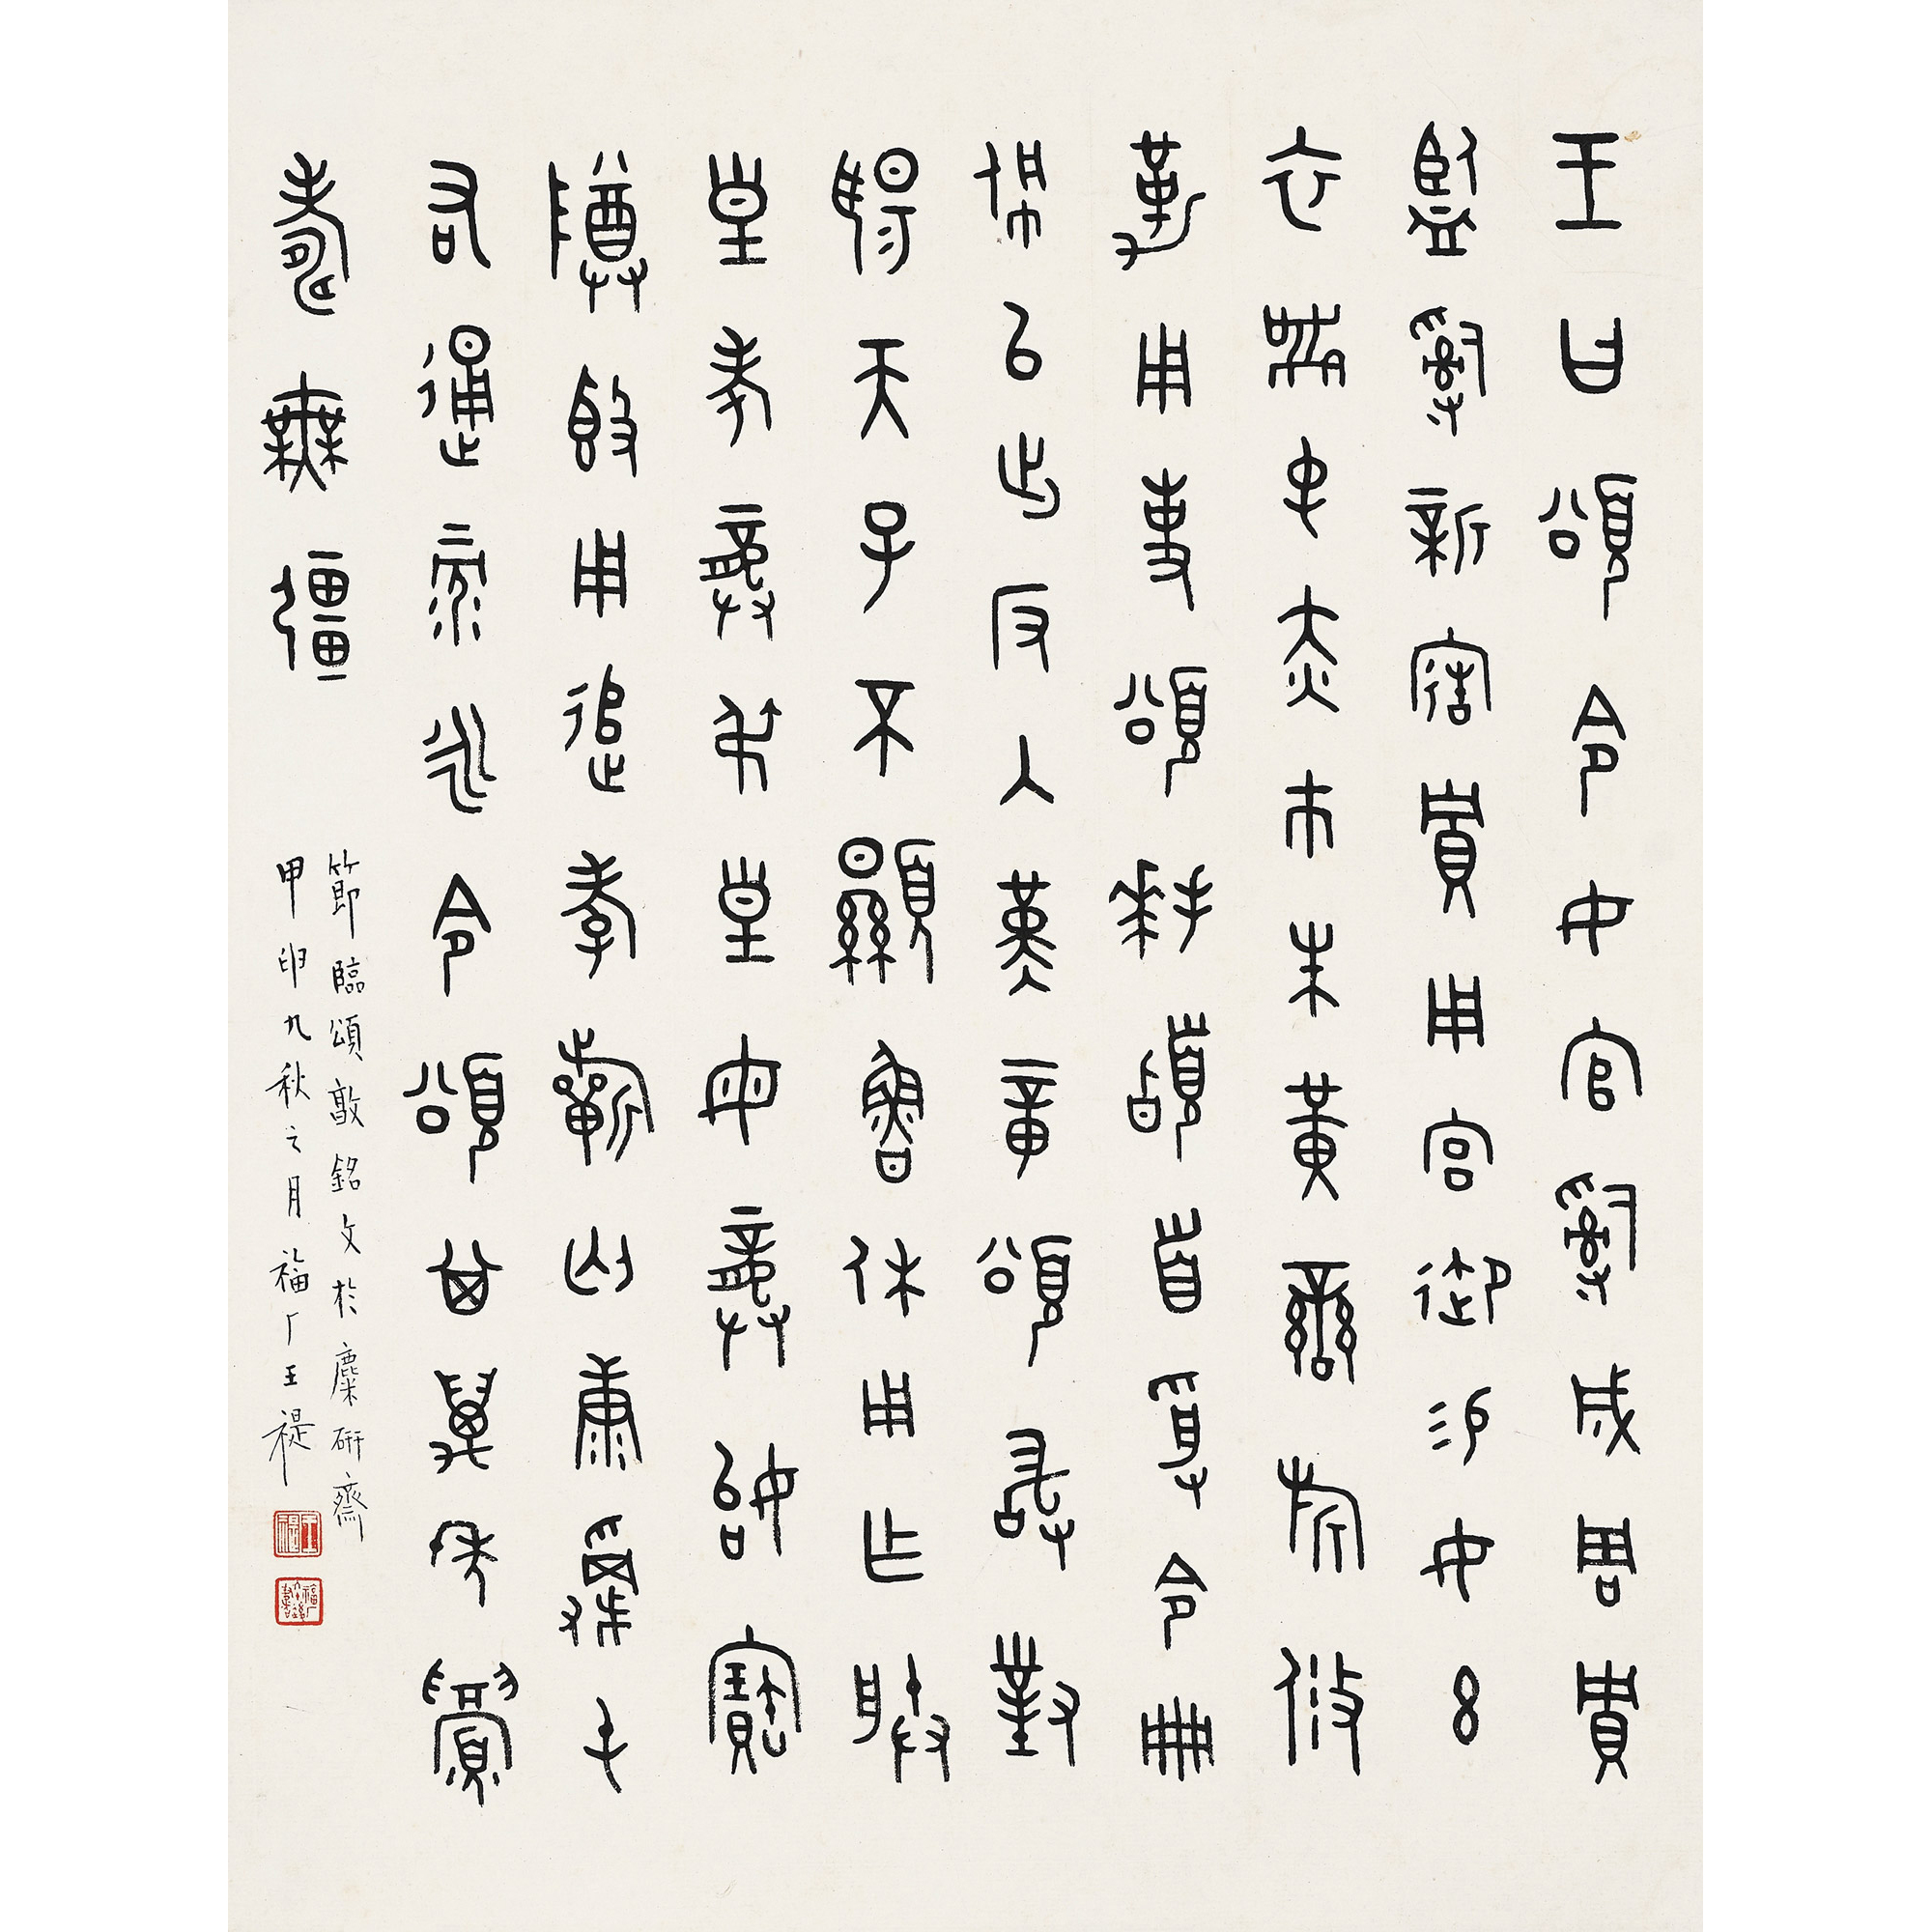 王曰頌令女官𤔲成周貯
監𤔲新造貯用宮御易女玄
衣黹屯赤巿朱黃䜌旂攸
勒用事頌拜䭫首受令冊
佩以出反入堇章頌敢對
揚天子不顯魯休用乍朕
皇考龏弔皇母龏姒寶
尊𣪘用追孝祈匄康𩁹屯
右通彔永令頌其萬年眉
壽無彊
節臨頌敦銘文於麋研齋
甲申九秋之月福厂王禔
王禔
福厂六十後書